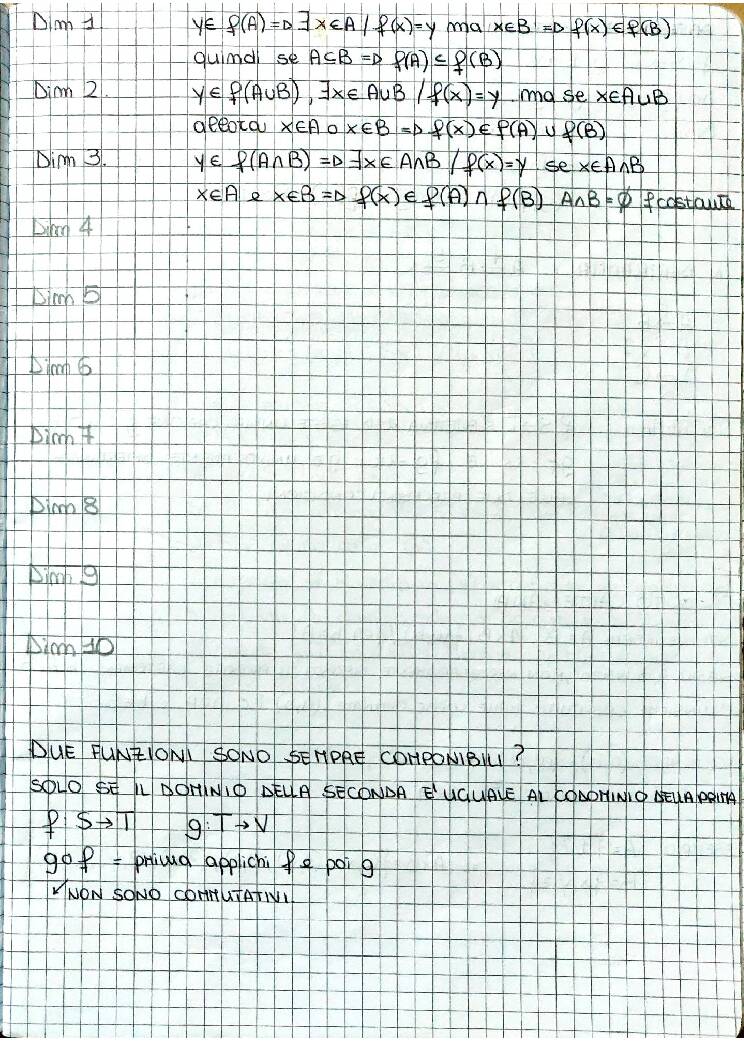 Dim 1 y∈ f(A) => ∃ x∈A / f(x)=y ma x∈B => f(x)∈f(B)
quindi se A⊆B => f(A) ⊆ f(B)
Dim 2. y∈ f(A∪B), ∃x∈ A∪B / f(x)=y ma se x∈A∪B
allora x∈A o x∈B => f(x)∈ f(A) ∪ f(B)
Dim 3. y∈ f(A∩B) => ∃x∈ A∩B / f(x)=y se x∈A∩B
x∈A e x∈B => f(x) ∈ f(A) ∩ f(B) A∩B = ∅ f costante
Dim 4
Dim 5
Dim 6
Dim 7
Dim 8
Dim 9
Dim 10
DUE FUNZIONI SONO SEMPRE COMPONIBILI?
SOLO SE IL DOMINIO DELLA SECONDA E' UGUALE AL CODOMINIO DELLA PRIMA
f: S→T g: T→V
g∘f = prima applichi f e poi g
↙NON SONO COMMUTATIVI.